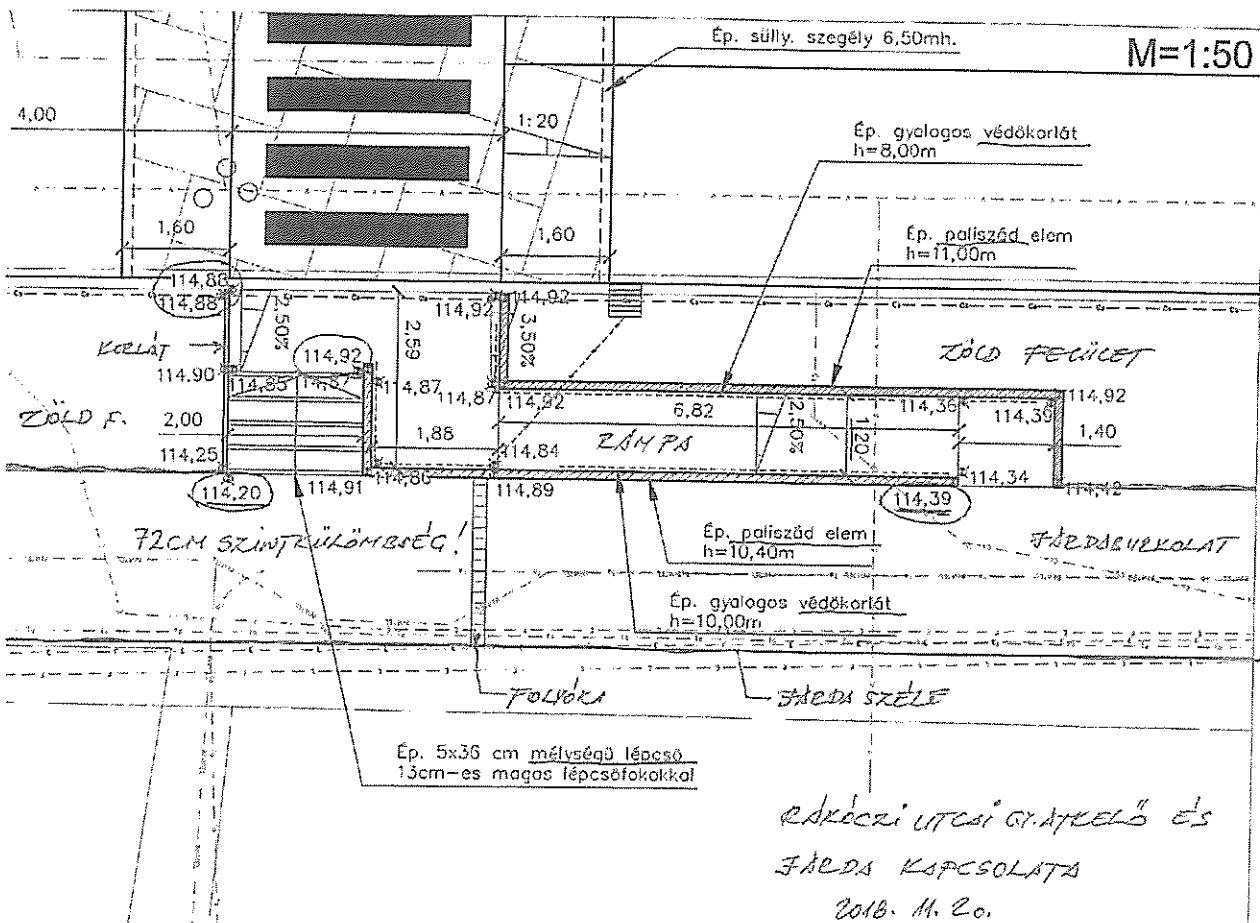 Ép. sülly. szegély 6,50mh.
M=1:50
4,00
1:20
Ép. gyalogos védőkorlát
h=8,00m
1,60
1,60
Ép. paliszád elem
h=11,00m
114,88
114,88
2,50%
2,59
114,92
114,92
3,50%
KORLÁT
114,92
ZÖLD FELÜLET
114,90
114,85
114,87
114,87
114,87
114,92
6,82
2,50%
1,20
114,36
114,39
114,92
ZÖLD F.
2,00
1,88
RÁMPA
1,40
114,25
114,84
114,34
114,20
114,91
114,86
114,89
114,39
114,42
72CM SZINTKÜLÖMBSÉG!
Ép. paliszád elem
h=10,40m
JÁRDABURKOLAT
Ép. gyalogos védőkorlát
h=10,00m
FOLYÓKA
JÁRDA SZÉLE
Ép. 5x36 cm mélységű lépcső
13cm-es magas lépcsőfokokkal
RÁKÓCZI UTCAI GY.ÁTKELŐ ÉS
JÁRDA KAPCSOLATA
2018. 11. 20.